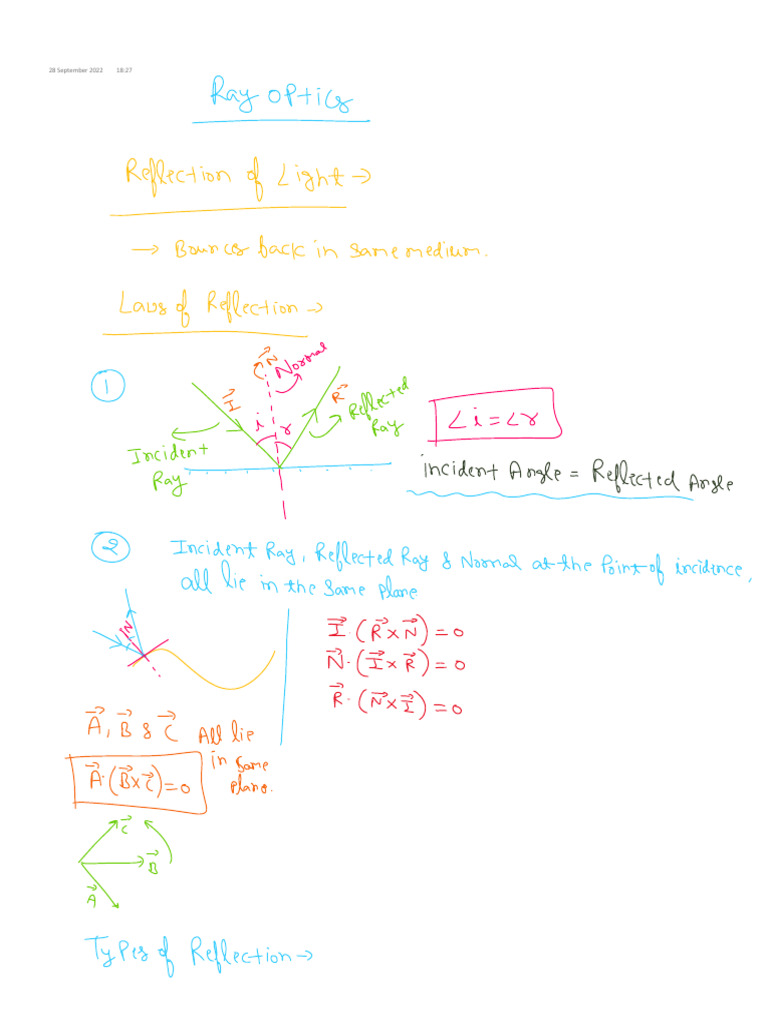 28 September 2022 18:27
Ray Optics
Reflection of Light →
→ Bounces back in same medium.
Laws of Reflection →
1
N⃗
Normal
I⃗
R⃗
i
r
Reflected
Ray
Incident
Ray
∠i = ∠r
incident Angle = Reflected Angle
2
Incident Ray, Reflected Ray & Normal at the Point of incidence,
all lie in the same plane
N
I⃗·(R⃗×N⃗) = 0
N⃗·(I⃗×R⃗) = 0
R⃗·(N⃗×I⃗) = 0
A⃗, B⃗ & C⃗ All lie
in same
plane.
A⃗·(B⃗×C⃗) = 0
C⃗
B⃗
A⃗
Types of Reflection →